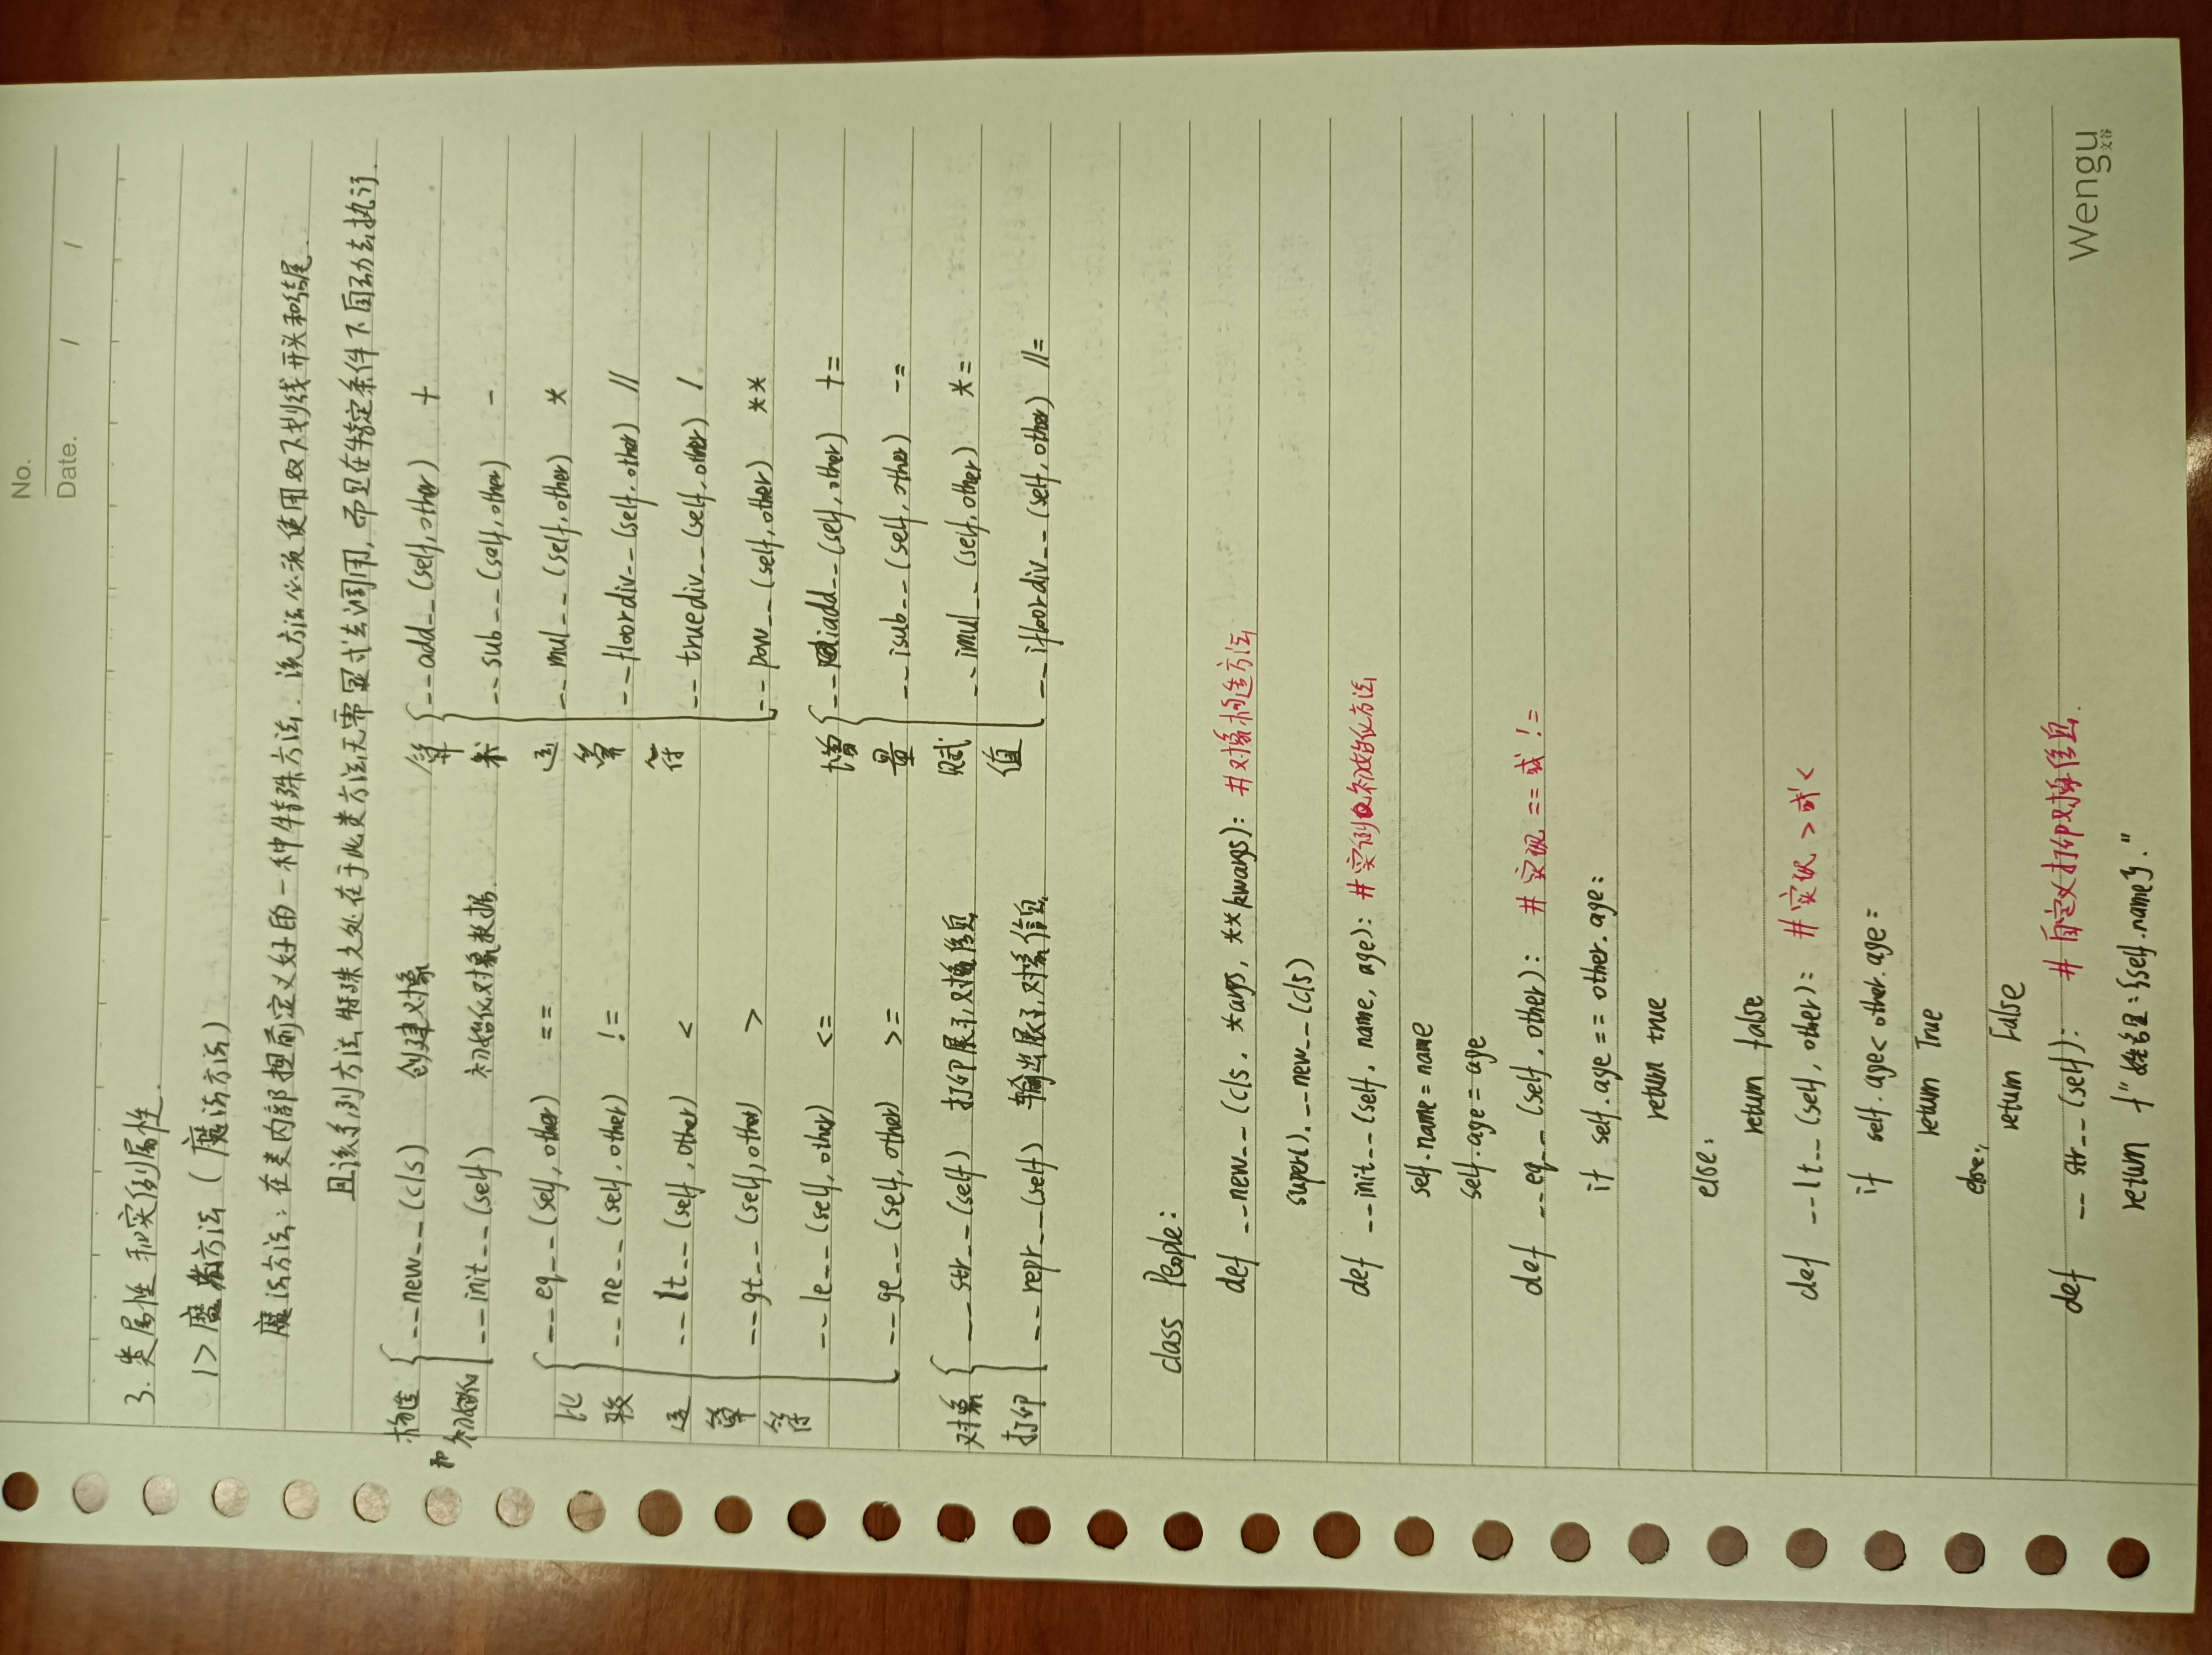 No.
Date. / /
3. 类属性和实例属性.
1> 魔术方法 (魔法方法)
魔法方法: 在类内部提前定义好的一种特殊方法. 该方法必须使用双下划线开头和结尾.
且该系列方法特殊之处在于此类方法无需显式去调用, 而是在特定条件下自动去执行.
构造和初始化
__new__(cls) 创建对象
__init__(self) 初始化对象数据.
比较运算符
__eq__(self, other) ==
__ne__(self, other) !=
__lt__(self, other) <
__gt__(self, other) >
__le__(self, other) <=
__ge__(self, other) >=
对象打印
__str__(self) 打印展示对象信息
__repr__(self) 输出展示对象信息
算术运算符
__add__(self, other) +
__sub__(self, other) -
__mul__(self, other) *
__floordiv__(self, other) //
__truediv__(self, other) /
__pow__(self, other) **
增量赋值
__iadd__(self, other) +=
__isub__(self, other) -=
__imul__(self, other) *=
__ifloordiv__(self, other) //=
class People:
def __new__(cls, *args, **kwargs): #对象构造方法
super().__new__(cls)
def __init__(self, name, age): #实例初始化方法
self.name = name
self.age = age
def __eq__(self, other): #实现 == 或 !=
if self.age == other.age:
return true
else:
return false
def __lt__(self, other): #实现 > 或 <
if self.age < other.age:
return True
else:
return False
def __str__(self): #自定义打印对象信息.
return f"姓名是:{self.name}."
Wengu
文谷